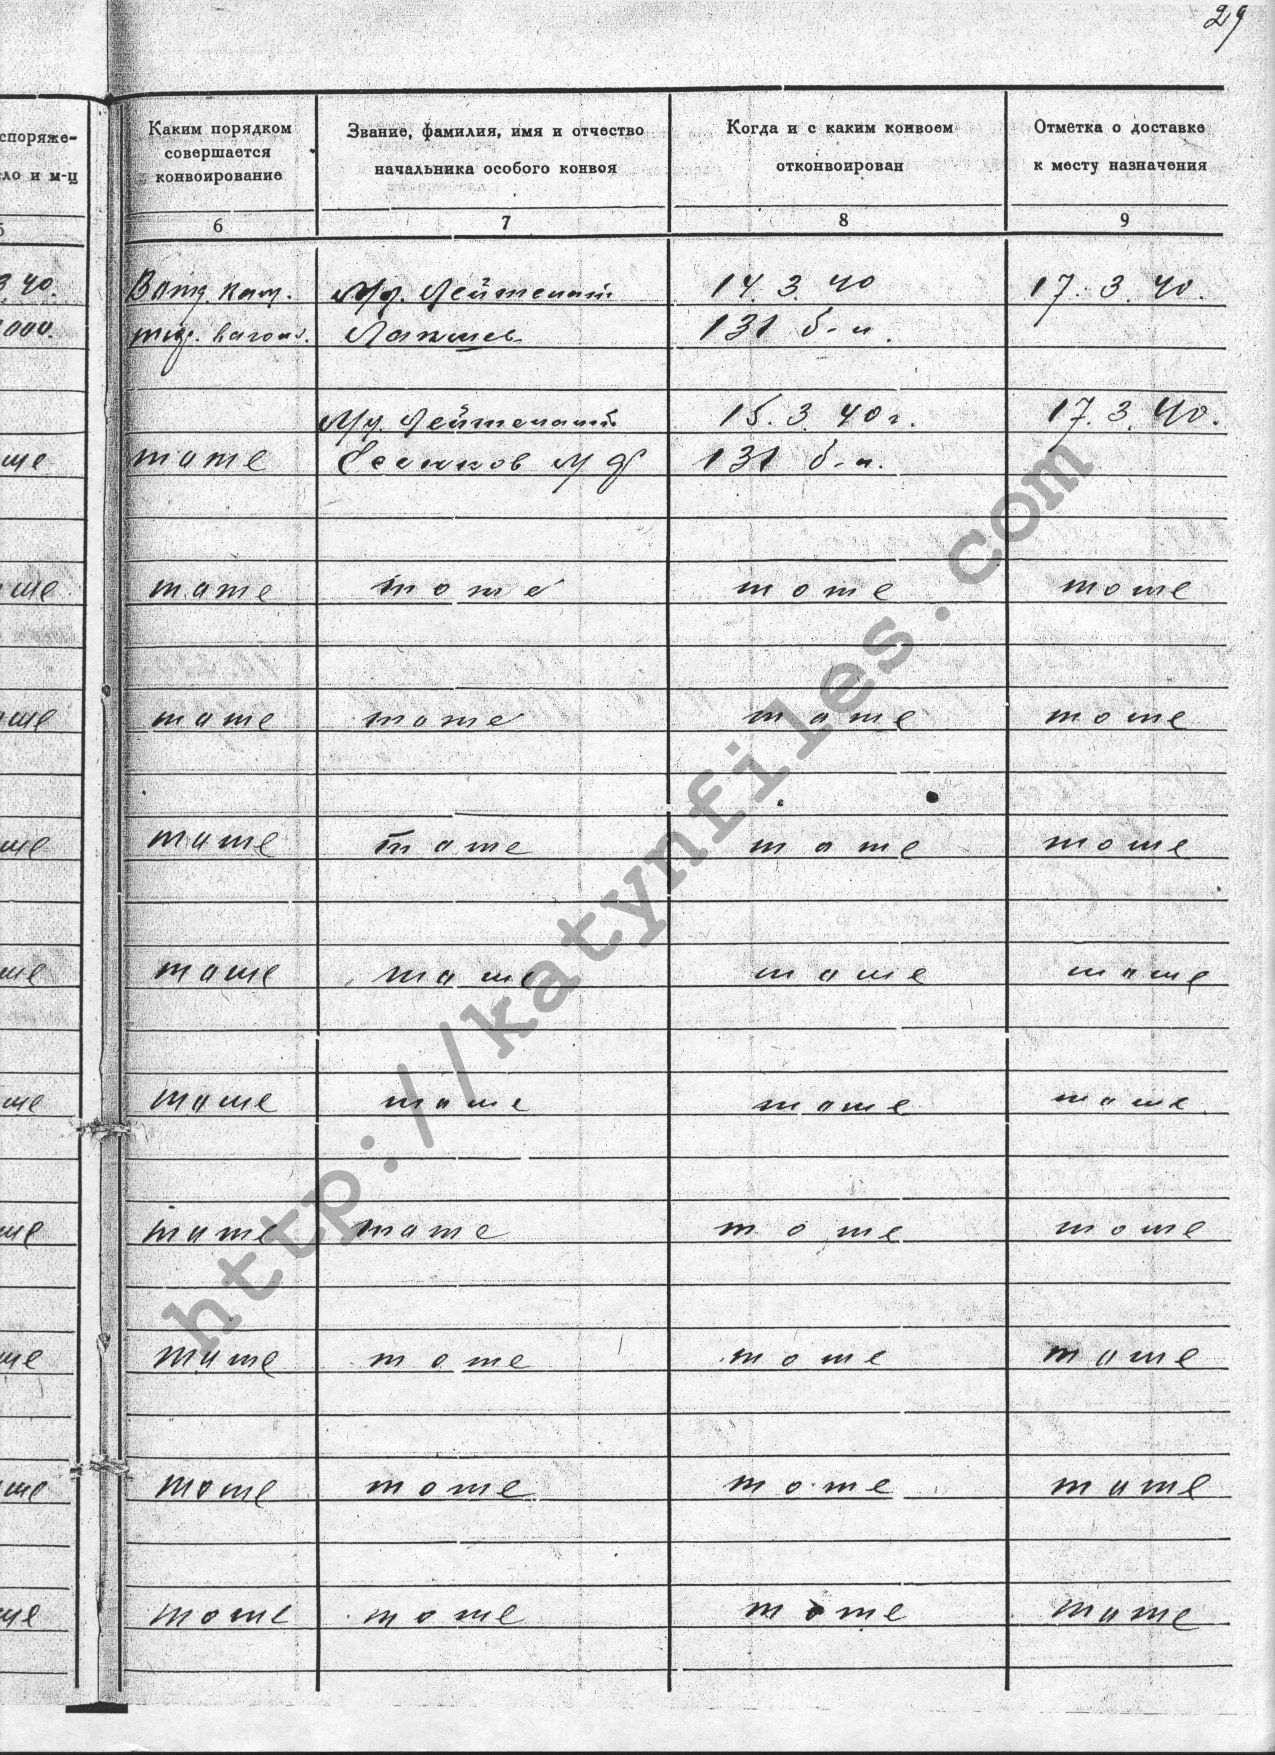 29
споряже-
ло и м-ц
5
Каким порядком
совершается
конвоирование
6
Звание, фамилия, имя и отчество
начальника особого конвоя
7
Когда и с каким конвоем
отконвоирован
8
Отметка о доставке
к месту назначения
9
3 40. В отд. кам. Мл. Лейтенант 14. 3. 40 17. 3. 40.
000. тюр. вагона. 131 б-н.
Мл. Лейтенант 15. 3. 40 г. 17. 3. 40.
ше тоже 131 б-н.
ше тоже тоже тоже тоже
ше тоже тоже тоже тоже
ше тоже тоже тоже тоже
ше тоже тоже тоже тоже
ше тоже тоже тоже тоже
ше тоже тоже тоже тоже
ше тоже тоже тоже тоже
ше тоже тоже тоже тоже
ше тоже тоже тоже тоже
http://katynfiles.com